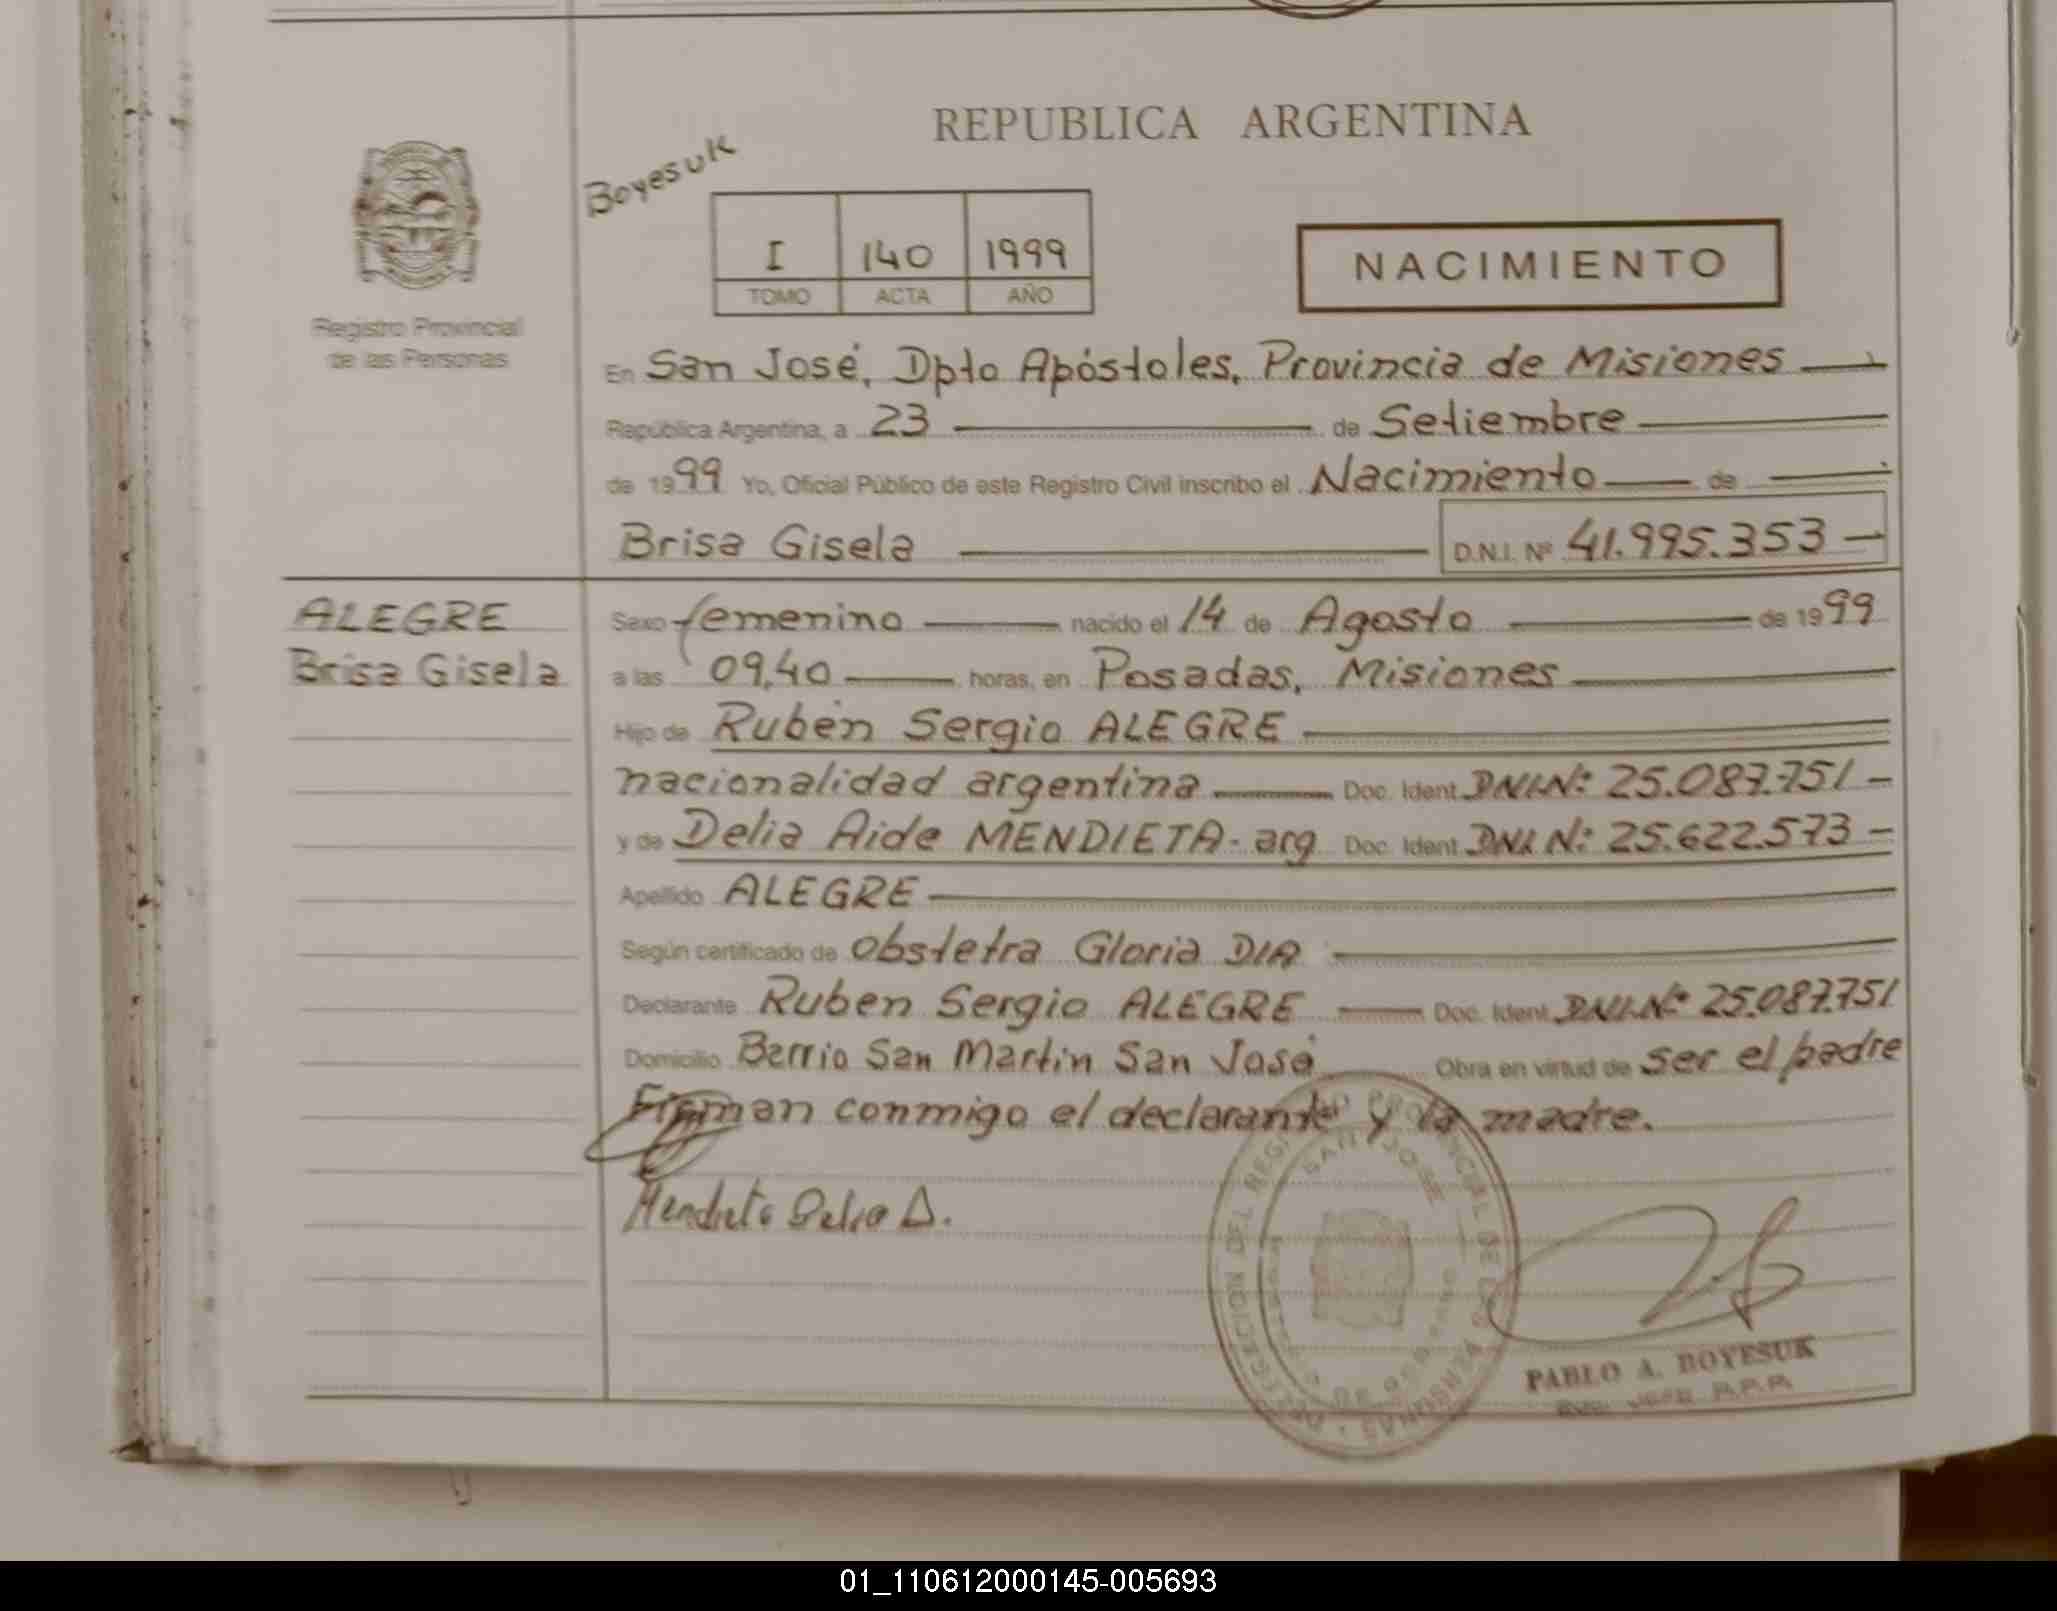 REPUBLICA ARGENTINA
Boyesuk
I 140 1999
TOMO ACTA AÑO
NACIMIENTO
Registro Provincial
de las Personas
En San José, Dpto Apóstoles, Provincia de Misiones
República Argentina, a 23 de Setiembre
de 1999 Yo, Oficial Público de este Registro Civil inscribo el Nacimiento de
Brisa Gisela D.N.I. Nº 41.995.353
ALEGRE
Brisa Gisela
Sexo femenino nacido el 14 de Agosto de 1999
a las 09,40 horas, en Posadas, Misiones
Hijo de Rubén Sergio ALEGRE
nacionalidad argentina Doc. Ident DNI.Nº: 25.087.751
y de Delia Aide MENDIETA- arg Doc. Ident DNI.Nº: 25.622.573
Apellido ALEGRE
Según certificado de obstetra Gloria DIA
Declarante Ruben Sergio ALEGRE Doc. Ident DNI.Nº 25.087.751
Domicilio Barrio San Martin San José Obra en virtud de ser el padre
Firman conmigo el declarante y la madre.
Mendieta Delia A.
DELEGACION DEL REGISTRO PROVINCIAL DE LAS PERSONAS
SAN JOSE
PABLO A. BOYESUK
01_110612000145-005693